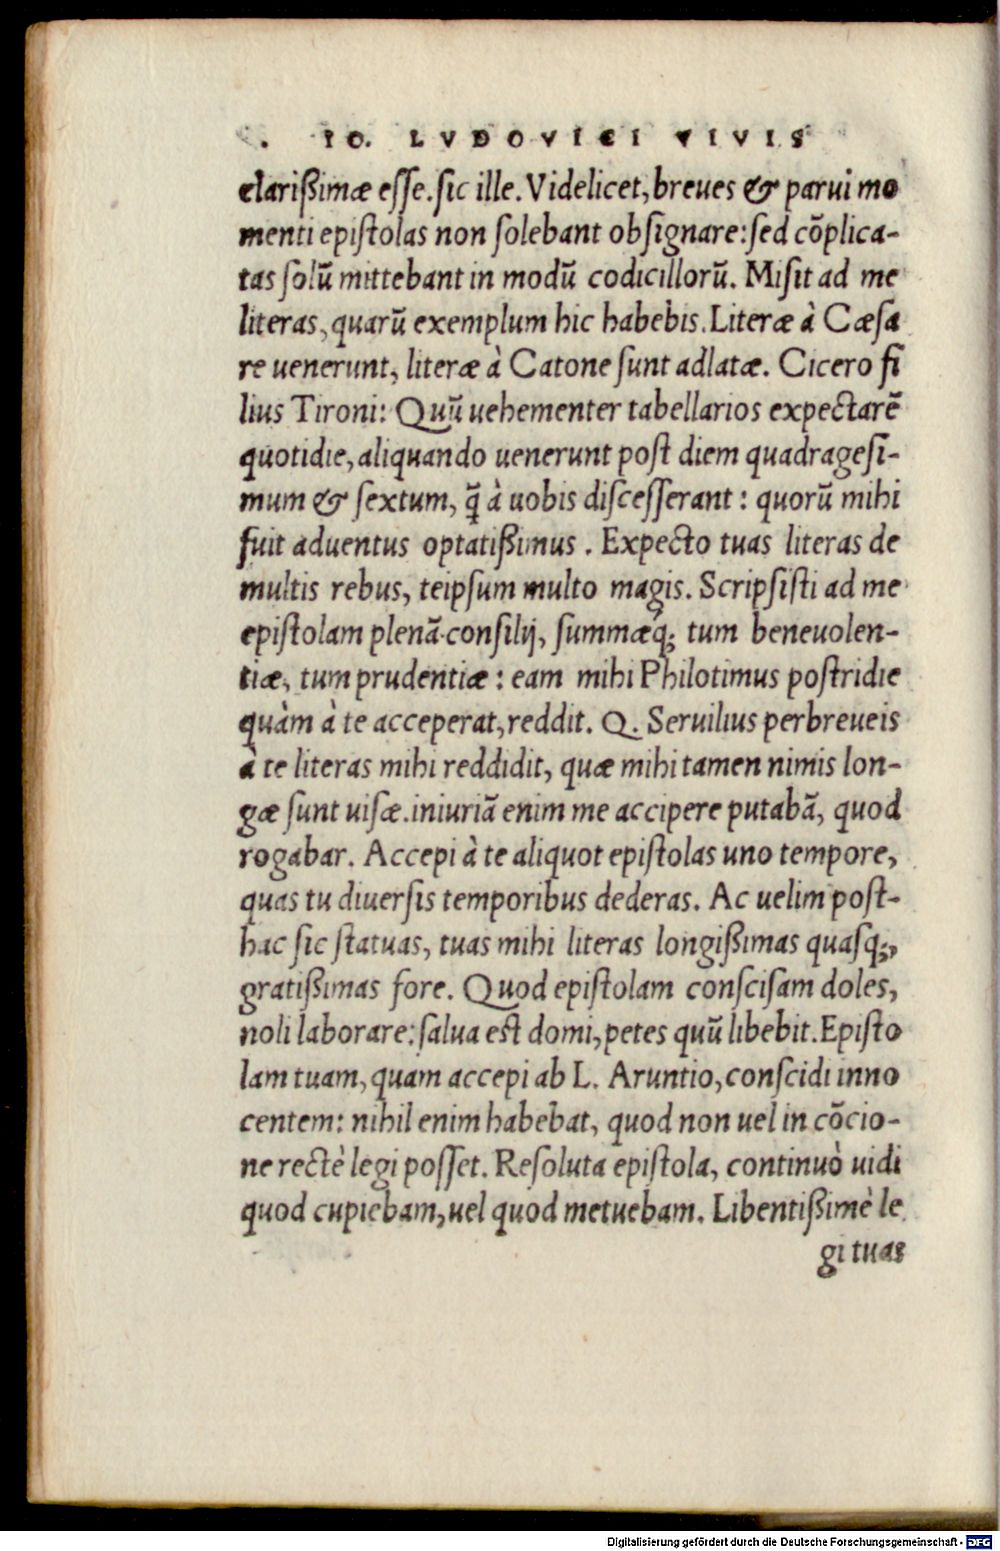 IO. LVDOVICI VIVIS
clarißimæ esse. sic ille. Videlicet, breues & parui mo
menti epistolas non solebant obsignare: sed cõplica-
tas solũ mittebant in modũ codicillorũ. Misit ad me
literas, quarũ exemplum hic habebis. Literæ à Cæsa
re uenerunt, literæ à Catone sunt adlatæ. Cicero fi
lius Tironi: Quũ uehementer tabellarios expectarẽ
quotidie, aliquando uenerunt post diem quadragesi-
mum & sextum, q̃ à uobis discesserant: quorũ mihi
fuit aduentus optatißimus. Expecto tuas literas de
multis rebus, teipsum multo magis. Scripsisti ad me
epistolam plenã consilij, summæq́; tum beneuolen-
tiæ, tum prudentiæ: eam mihi Philotimus postridie
quàm à te acceperat, reddit. Q. Seruilius perbreueis
à te literas mihi reddidit, quæ mihi tamen nimis lon-
gæ sunt uisæ. iniuriã enim me accipere putabã, quod
rogabar. Accepi à te aliquot epistolas uno tempore,
quas tu diuersis temporibus dederas. Ac uelim post-
hac sic statuas, tuas mihi literas longißimas quasq;,
gratißimas fore. Quod epistolam conscisam doles,
noli laborare: salua est domi, petes quũ libebit. Episto
lam tuam, quam accepi ab L. Aruntio, conscidi inno
centem: nihil enim habebat, quod non uel in cõcio-
ne rectè legi posset. Resoluta epistola, continuò uidi
quod cupiebam, uel quod metuebam. Libentißimè le
gi tuas
Digitalisierung gefördert durch die Deutsche Forschungsgemeinschaft - DFG